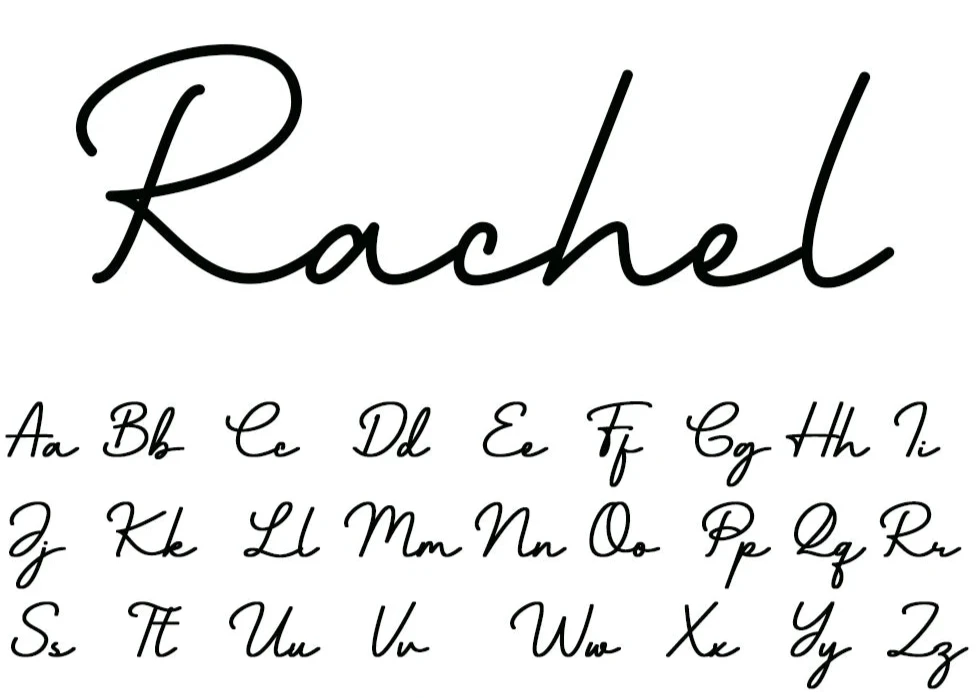 Rachel
Aa Bb Cc Dd Ee Ff Gg Hh Ii
Jj Kk Ll Mm Nn Oo Pp Qq Rr
Ss Tt Uu Vv Ww Xx Yy Zz